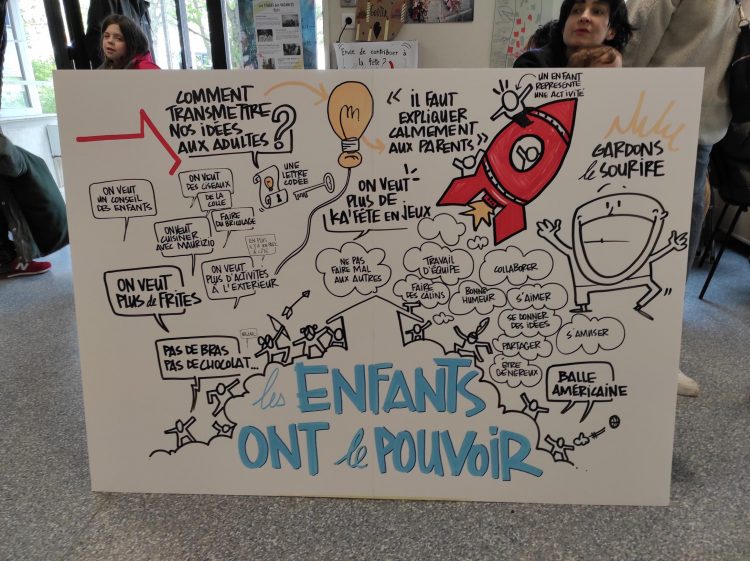 Envie de contribuer
à la fête ?
COMMENT
TRANSMETTRE
NOS IDÉES
AUX ADULTES ?
« IL FAUT
EXPLIQUER
CALMEMENT
AUX PARENTS »
UN ENFANT
REPRÉSENTE
UNE ACTIVITÉ
GARDONS
le SOURIRE
UNE
LETTRE
CODÉE
ON VEUT
UN CONSEIL
DES ENFANTS
ON VEUT
DES CISEAUX
DE LA
COLLE
FAIRE DU
BRICOLAGE
ON VEUT
CUISINER
AVEC MAURIZIO
ON VEUT
PLUS DE
KA'FÊTE EN JEUX
ON VEUT
PLUS de FRITES
ON VEUT
PLUS D'ACTIVITÉS
À L'EXTÉRIEUR
NE PAS
FAIRE MAL
AUX AUTRES
TRAVAIL
D'ÉQUIPE
COLLABORER
FAIRE
DES CÂLINS
BONNE
HUMEUR
S'AIMER
SE DONNER
DES IDÉES
PARTAGER
S'AMUSER
ÊTRE
GÉNÉREUX
PAS DE BRAS
PAS DE CHOCOLAT...
BALLE
AMÉRICAINE
les ENFANTS
ONT le POUVOIR